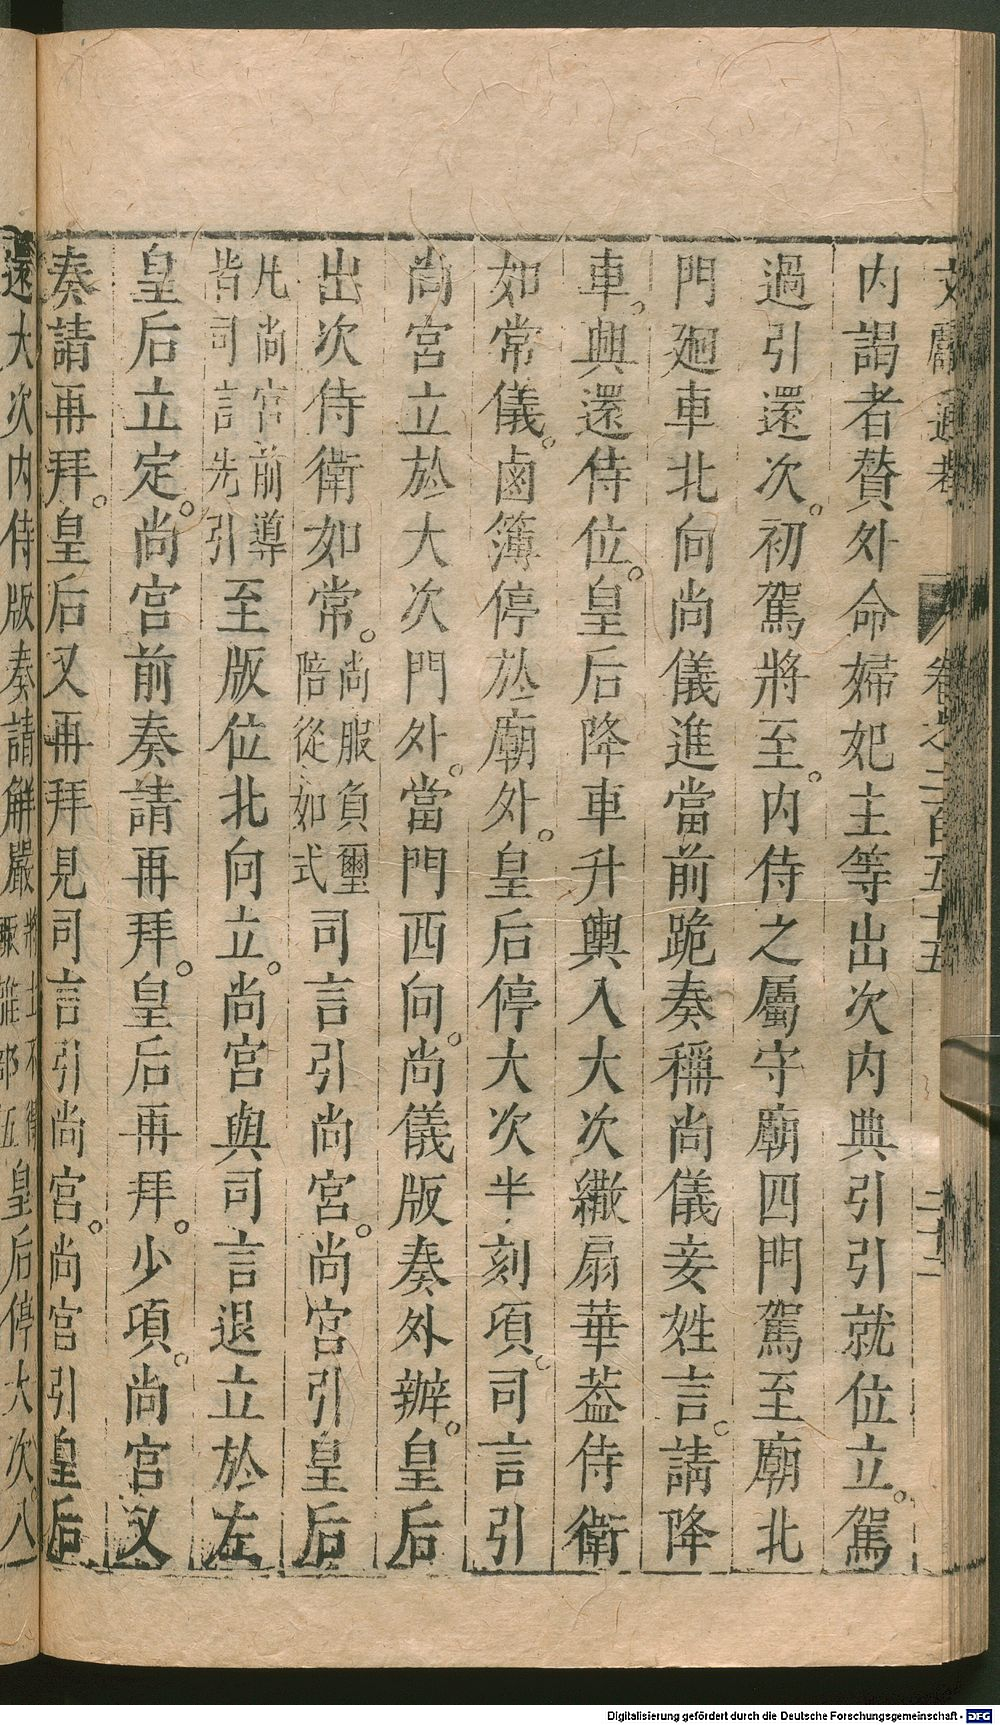 文獻通考 卷之二百五十五 二十二
內謁者贊外命婦妃主等出次內典引引就位立。駕
過引還次。初駕將至。內侍之屬守廟四門駕至廟北
門廻車北向尚儀進當前跪奏稱尚儀妾姓言。請降
車。興還侍位。皇后降車升輿入大次繖扇華葢侍衛
如常儀。鹵簿停於廟外。皇后停大次半刻項。司言引
尚宮立於大次門外。當門西向。尚儀版奏外辦。皇后
出次侍衛如常。尚服負璽陪從如式司言引尚宮。尚宮引皇后
凡尚宮前導皆司言先引至版位北向立。尚宮與司言退立於左
皇后立定。尚宮前奏請再拜。皇后再拜。少項。尚宮又
奏請再拜。皇后又再拜見司言引尚宮。尚宮引皇后
還大次內侍版奏請解嚴將士不得輒離部伍皇后停大次。八
Digitalisierung gefördert durch die Deutsche Forschungsgemeinschaft - DFG